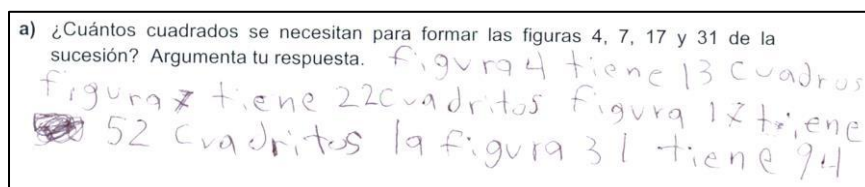 a) ¿Cuántos cuadrados se necesitan para formar las figuras 4, 7, 17 y 31 de la
sucesión? Argumenta tu respuesta. figura 4 tiene 13 cuadros
figura 7 tiene 22 cuadritos figura 17 tiene
52 cuadritos la figura 31 tiene 94